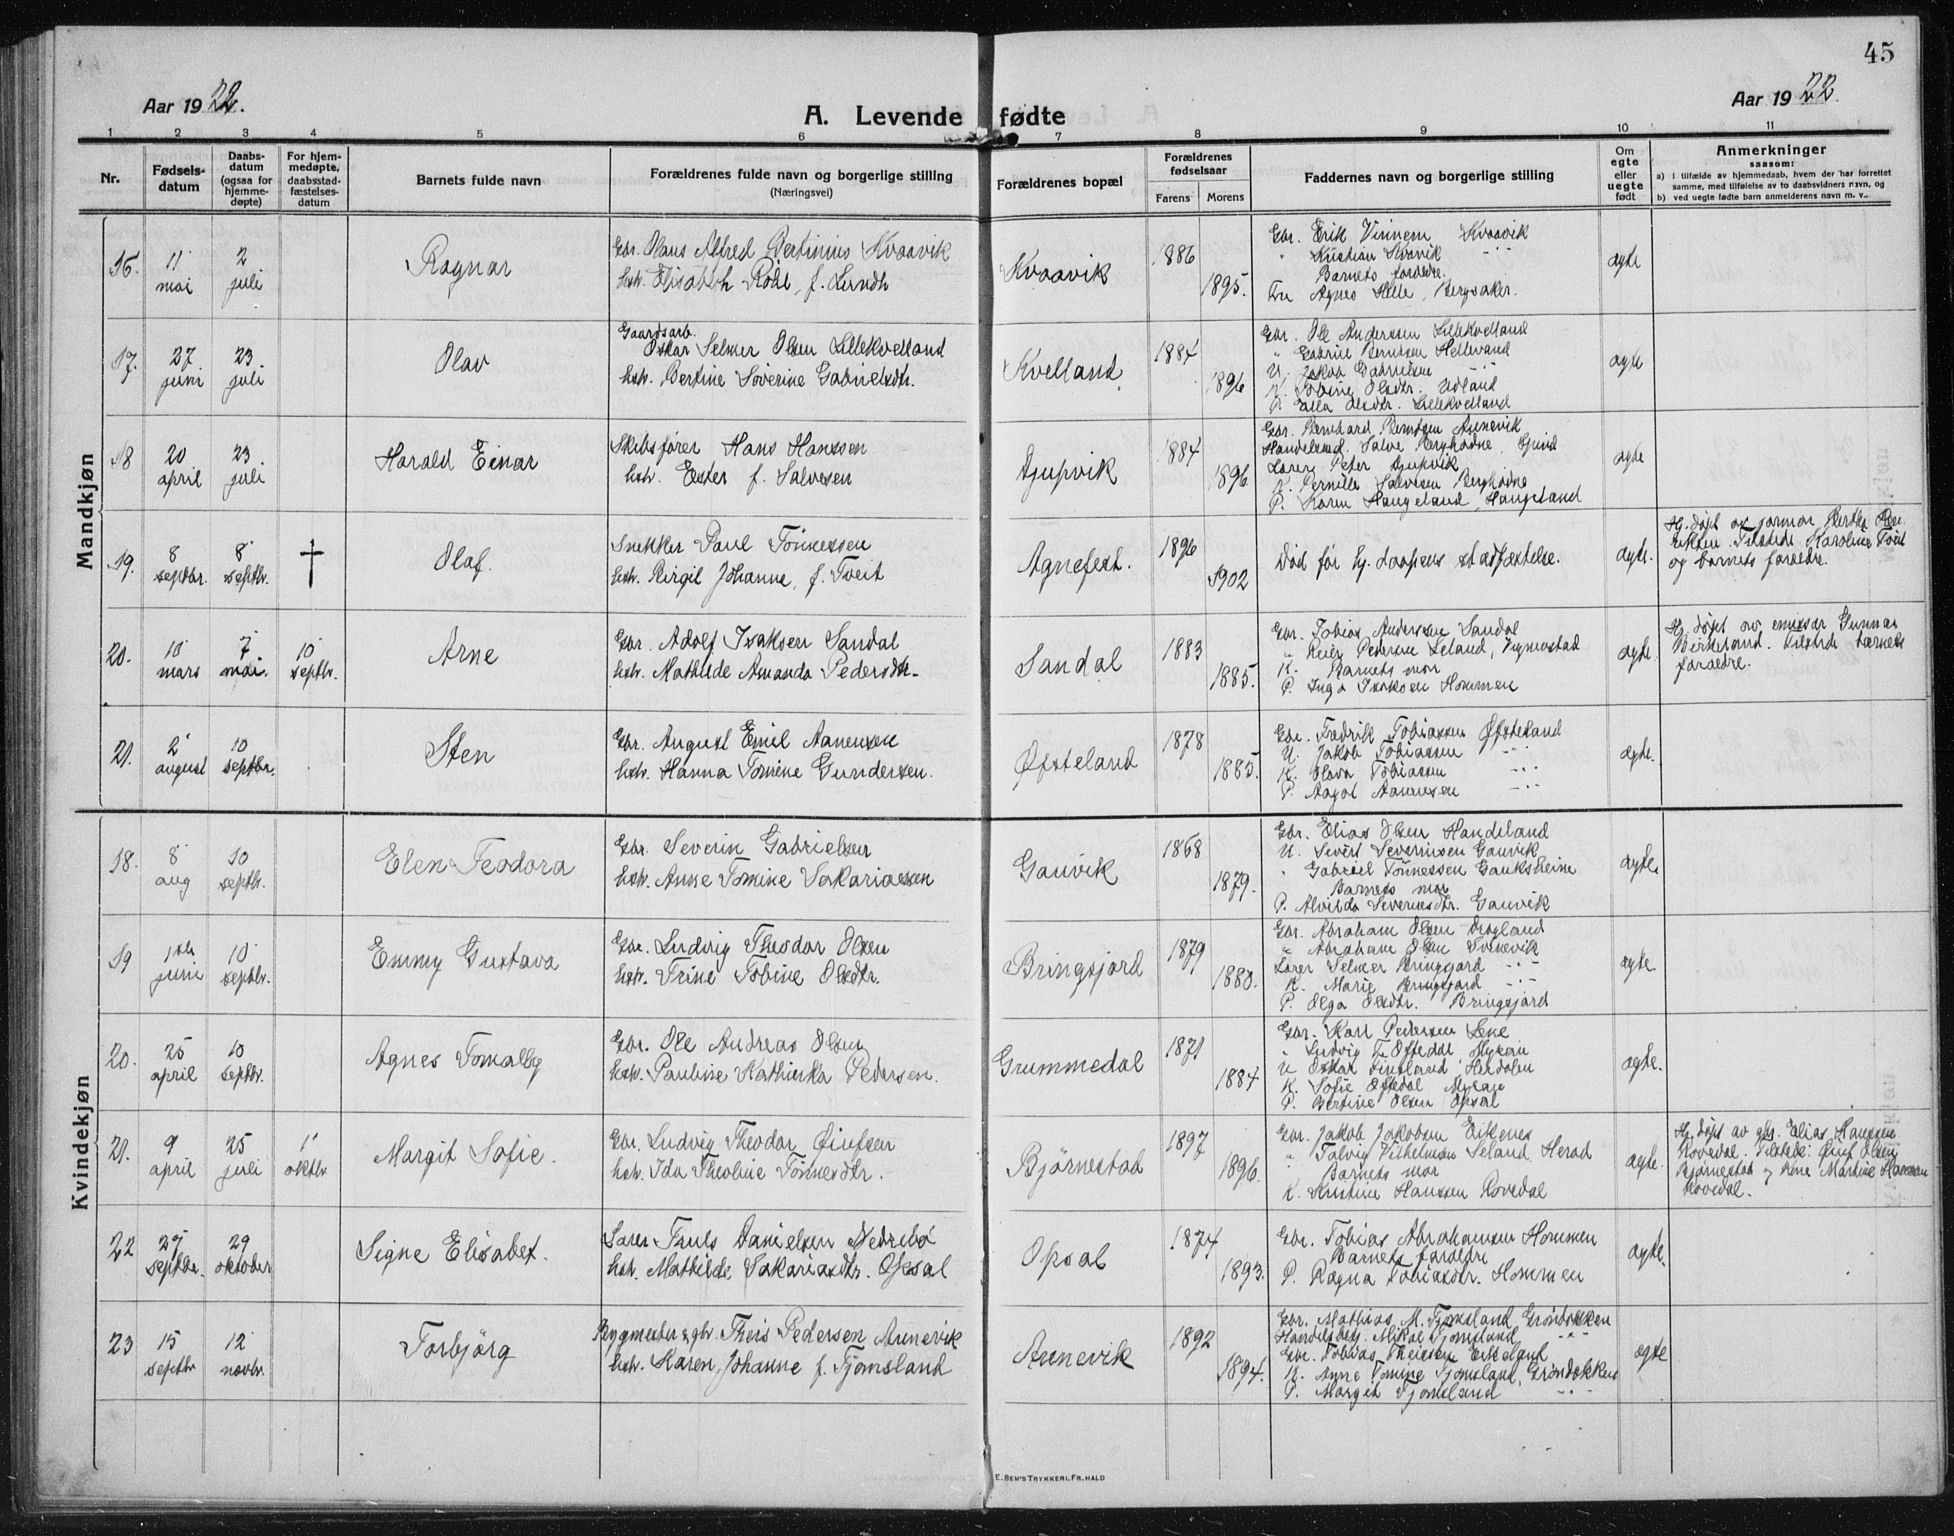 45
Aar 1922.
Aar 1922.
A. Levende fødte
1 2 3 4 5 6 7 8 9 10 11
Nr.
Fødsels-
datum
Daabs-
datum
(ogsaa for
hjemme-
døpte)
For hjem-
medøpte,
daabsstad-
fæstelses-
datum
Barnets fulde navn
Forældrenes fulde navn og borgerlige stilling
(Næringsvei)
Forældrenes bopæl
Forældrenes
fødselsaar
Farens Morens
Faddernes navn og borgerlige stilling
Om
egte
eller
uegte
født
Anmerkninger
saasom:
a) i tilfælde av hjemmedaab, hvem der har forrettet
samme, med tilføielse av to daabsvidners navn, og
b) ved uegte fødte barn anmelderens navn m. v..
Mandkjøn
16. 11 mai 2 juli
Ragnar
Gbr. Hans Alfred Bertinius Kvaavik
hstr. Elisabeth Rödl, f. Lundh
Kvaavik
1886 1895.
Gbr. Erik Vinnem Kvaavik
" Kristian Kvavik
Barnets forældre.
Fru Agnes Helle, Bergsaker.
ægte
17. 27 juni 23 juli
Olav
Gaardsarb.
Oskar Selmer Olsen Lillekvelland
hstr. Bertine Severine Gabrielsdtr.
Kvelland
1884 1896
Gbr. Ole Anderssen Lillekvelland
" Gabriel Berntsen Hellevand
U. Jakob Gabrielsen
K. Tobine Olsdtr. Udland
P. Ella Olsdtr. Lillekvelland
ægte
18 20 april 23 juli
Harald Einar
Skibsfører Hans Hanssen
hstr. Ester f. Salvesen
Djupvik
1884 1896
Gbr. Bernhard Berntsen Aunevik
Salve Berghødne,
Lærer Peter Djupvik
K. Pernille Salvesen Berghødne
P. Karen Haugeland, Haugeland
ægte
19. 8 septbr. 8 septbr. †
Olaf.
Snekker Paul Tönnessen
hstr. Birgit Johanne, f. Tveit
Agnefest.
1896 1902
Död för hj. daapens stadfæstelse.
ægte.
Hj. døpt av jormor Bertha
Eriksen. Tilstede Karoline Tveit
og barnets forældre.
20. 10 mars 7 mai. 10 septbr.
Arne
Gbr. Adolf Isaksen Sandal
hstr. Mathilde Amanda Pedersdtr.
Sandal
1883 1885.
Gbr. Tobias Anderssen Sandal
" Reier Pedersen Leland, Vigmostad
K. Barnets mor
P. Inga Isaksen Hommen
ægte.
Hj. døpt av emissær Gunnar
Birkeland. Tilstede barnets
forældre.
21. 2 august 10 septbr.
Sten
Gbr. August Emil Aanensen
hstr. Hanna Tomine Gundersen.
Øfsteland
1878 1885.
Gbr. Fredrik Tobiassen Øfsteland
U. Jakob Tobiassen
K. Olava Tobiassen
P. Aagot Aanensen
ægte.
Kvindekjøn
18. 8 aug 10 septbr.
Elen Feodora
Gbr. Severin Gabrielsen
hstr. Anne Tomine Sakariassen
Gauvik
1868 1879.
Gbr. Elias Olsen Handeland
U. Sivert Severinsen Gauvik
" Gabriel Tönnessen Gauksheine
Barnets mor
P. Alvilda Severinsdtr. Gauvik
ægte.
19 1ste juni 10 septbr.
Emmy Gustava
Gbr. Ludvig Theodor Olsen
hstr. Trine Tobine Olsdtr.
Bringsjord
1879 1880.
Gbr. Abraham Olsen Drogland
" Abraham Olsen
Lærer Selmer Bringsjord
K. Marie Bringsjord
P. Olga Olsdtr. Bringsjord
ægte.
20. 25 april 10 septbr.
Agnes Tomalby
Gbr. Ole Andreas Olsen
hstr. Pauline Kathinka Pedersen.
Grummedal
1871 1884
Gbr. Karl Pedersen Lene
" Ludvig T. Oftedal, Myran
U Oskar Finsland, Herdalen
K. Sofie Oftedal Myran
P. Bertine Olsen Opsal
ægte.
21. 9 april 25 juli 1 oktbr.
Margit Sofie.
Gbr. Ludvig Theodor Öiufsen
hstr. Ida Theoline Tönnesdtr.
Bjørnestad
1897 1896.
Gbr. Jakob Jakobsen Eikenes
" Tolvig Vilhelmsen Leland, Herad
Barnets mor
K. Kristine Hanssen Rovedal
ægte.
Hj. døpt av gbr. Elias Hanssen
Rovedal. Tilstede: Öiuf Olsen
Bjørnestad og Ane Martine Hanssen
Rovedal.
22 29 septbr. 29 oktober
Signe Elisabet.
Lærer Truls Danielsen Nedrebø
hstr. Mathilde, Sakariasdtr. Opsal
Opsal
1874 1893.
Gbr. Tobias Abrahamsen Hommen
Barnets forældre
P. Ragna Tobiasdtr. Hommen
ægte.
23 15 septbr 12 novbr.
Torbjörg
Bygmester & gbr. Theis Pedersen Aunevik
hstr. Karen Johanne f. Tjomsland
Aunevik
1892 1894.
Gbr. Mathias M. Tjomsland, Grøndokken
Handelsbetj. Mikal Tjomsland
Gbr. Tobias Theisen Eikeland
K. Anne Tomine Tjomsland, Grøndokken
P. Margit Tjomsland
ægte
E. BEM'S TRYKKERI, FR.HALD